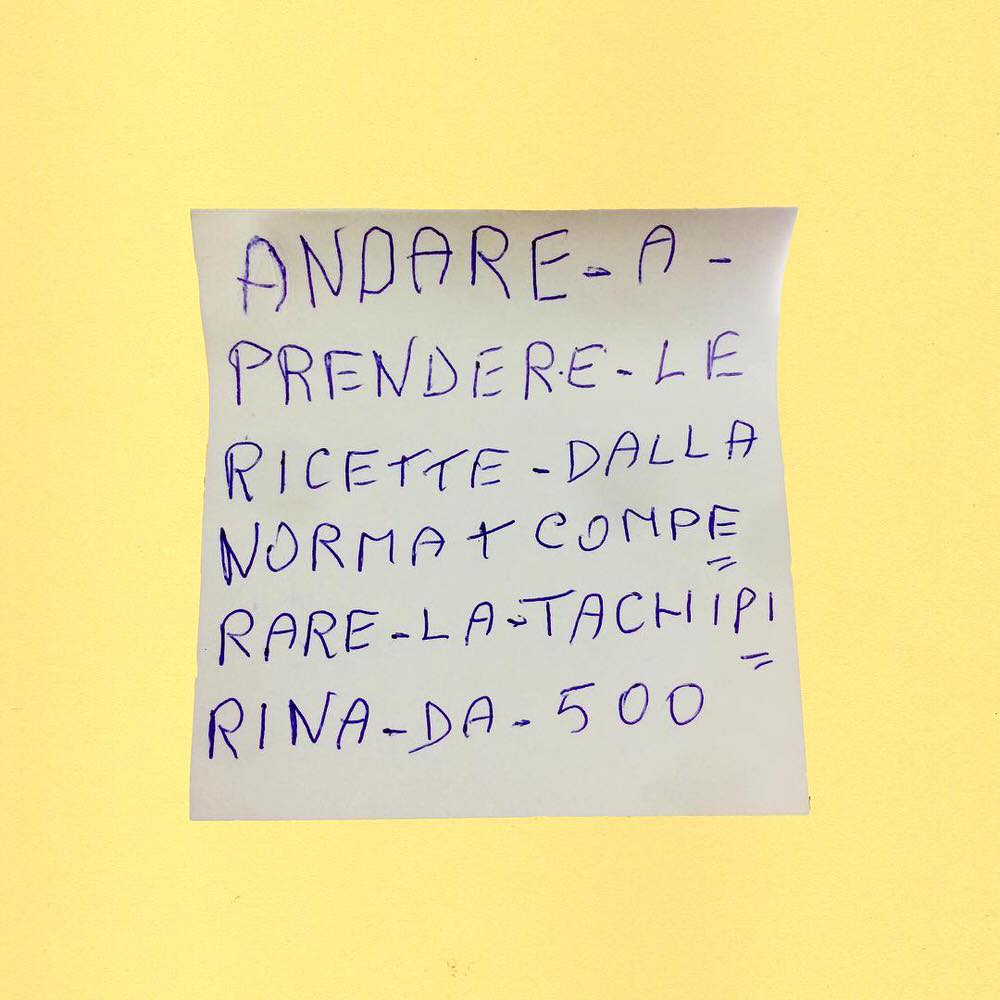 ANDARE-A-
PRENDERE-LE
RICETTE-DALLA
NORMA+COMPE=
RARE-LA-TACHIPI=
RINA-DA-500